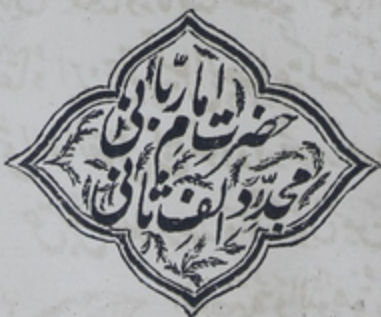 حضرت امام ربانی
مجدّد الف ثانی